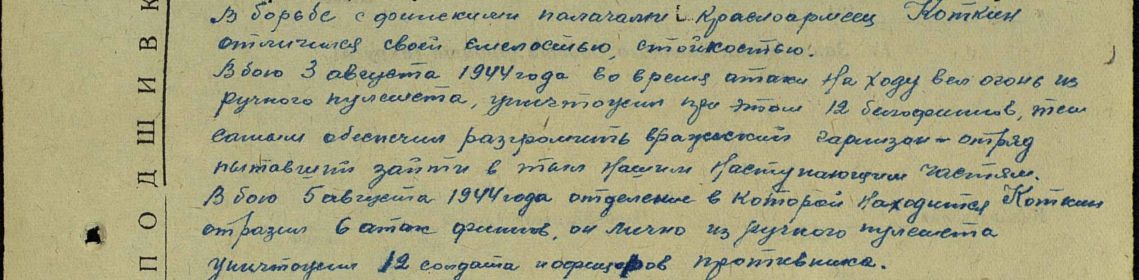 В борьбе с финскими палачами красноармеец Коткин
отличился своей смелостью, стойкостью.
В бою 3 августа 1944 года во время атаки на ходу вел огонь из
ручного пулемета, уничтожил при этом 12 белофиннов, тем
самым обеспечил разгромить вражеский гарнизон – отряд
пытавший зайти в тыл нашим наступающим частям.
В бою 5 августа 1944 года отделение в которой находится Коткин
отразил 6 атак финнов, он лично из ручного пулемета
уничтожил 12 солдата и офицеров противника.
ПОДШИВК